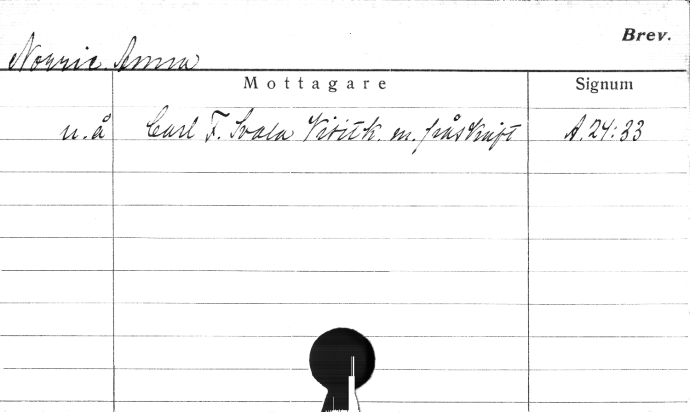 Brev.
Norrie, Anna
Mottagare Signum
u. å Carl F. Svala Visitk. m. påskrift A.24:33